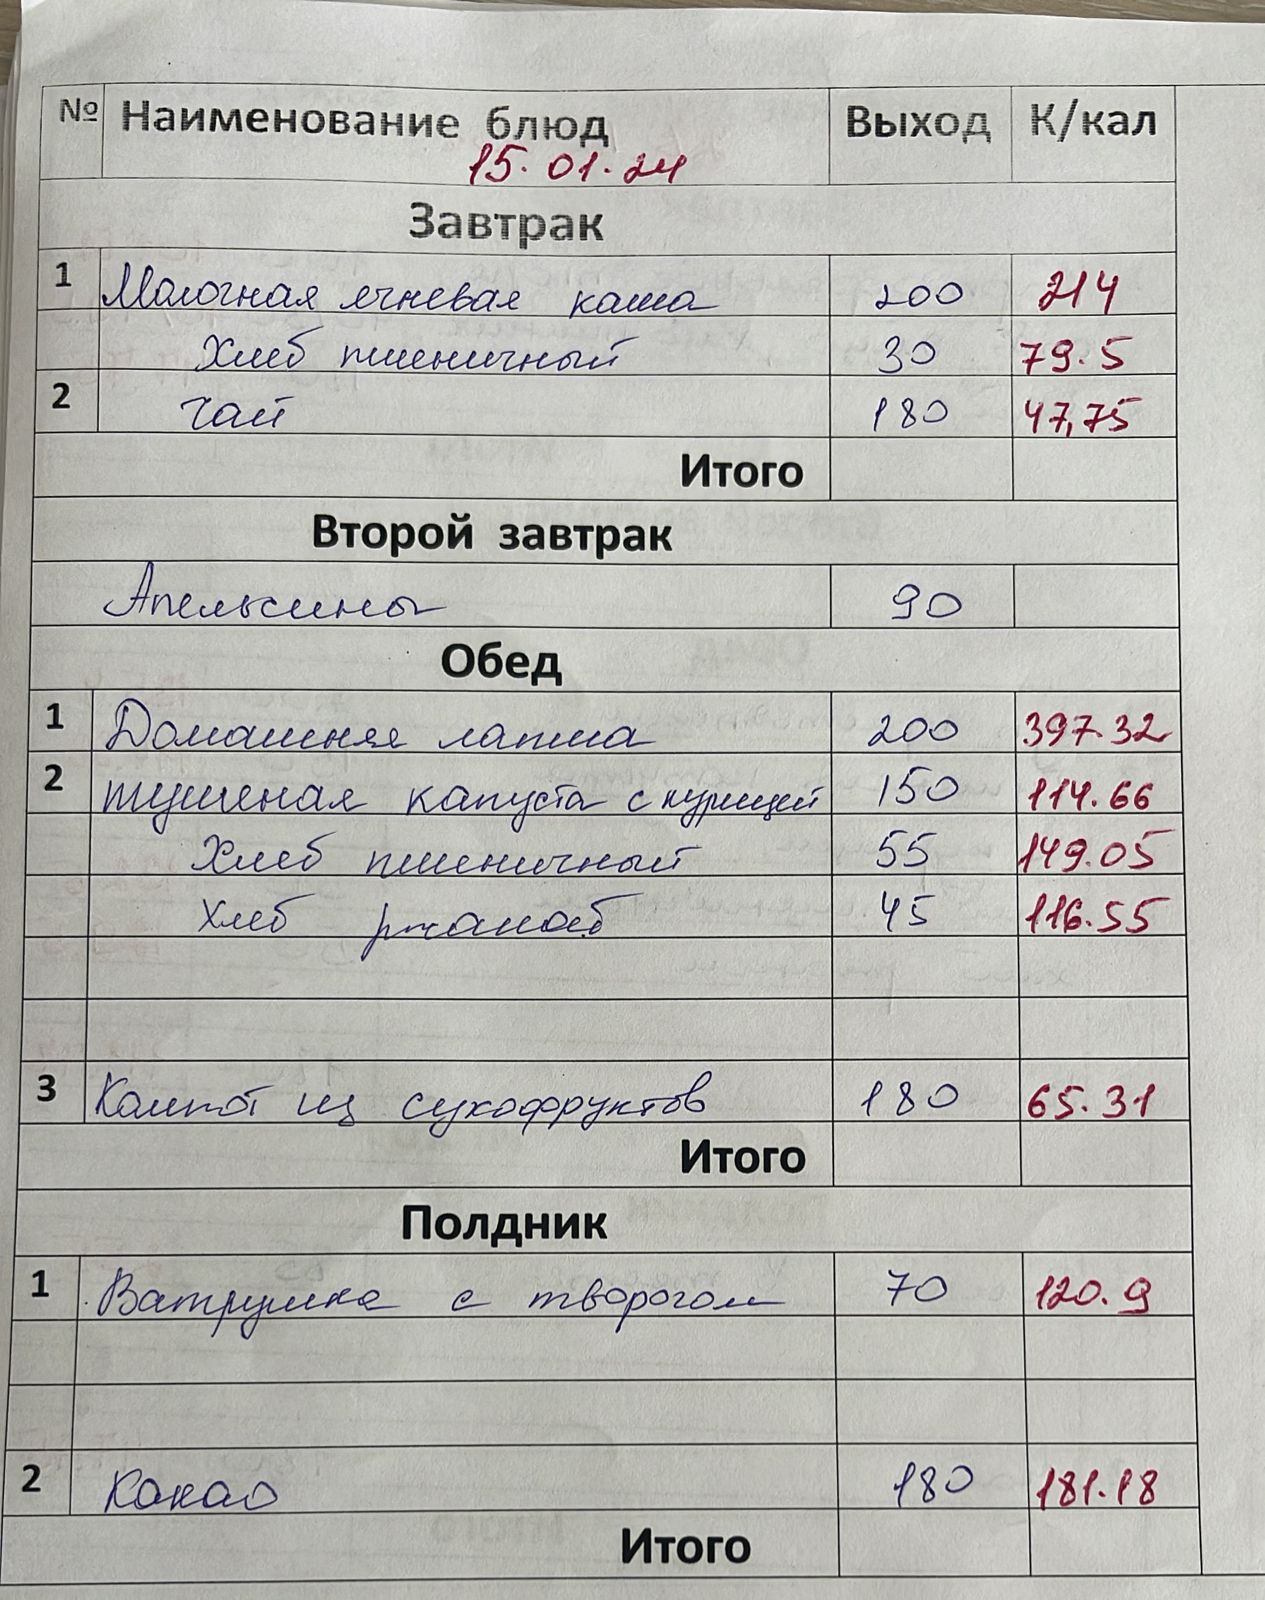 № Наименование блюд Выход К/кал
15.01.24
Завтрак
1 Молочная ячневая каша 200 214
Хлеб пшеничный 30 79.5
2 Чай 180 47,75
Итого
Второй завтрак
Апельсины 90
Обед
1 Домашняя лапша 200 397.32
2 тушеная капуста с курицей 150 114.66
Хлеб пшеничный 55 149.05
Хлеб ржаной 45 116.55
3 Компот из сухофруктов 180 65.31
Итого
Полдник
1 Ватрушка с творогом 70 120.9
2 Какао 180 181.18
Итого